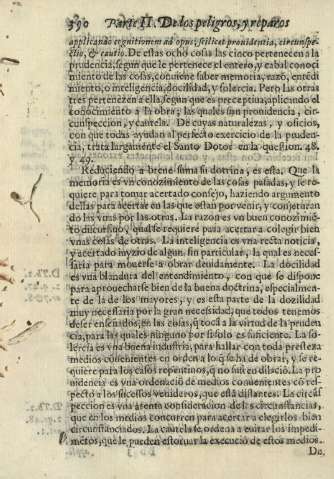 590 Parte II. De los peligros, y reparos
applicando cognitionem ad opus, scilicet prouidentia, circunspe-
ctio, & cautio. De estas ocho cosas las cinco pertenecen a la
prudencia, segun que le pertenece el entero, y cabal conoci
miento de las cosas, conuiene saber memoria, razō, entēdi
miento, o inteligencia, docilidad, y solercia. Pero las otras
tres pertenezen a ella, segun que es perceptiua, aplicando el
conocimiento a la obra; las quales sun prouidencia, cir-
cunspeccion, y cautela. De cuyas naturalezas, y oficios,
con que todas ayudan al perfecto exercicio de la pruden-
cia, trata largamente el Santo Dotor en la question. 48.
y 49.
Reduciendo a breue suma su dotrina, es esta. Que la
memoria es vn conozimiento de las cosas pasadas, y se re-
quiere para tomar acertado consejo, haziendo argumen
destas para acertar en las que están por venir, y conjeturan
do las vnas por las otras. La razon es vn buen conozimiē-
to discursiuo, qual se requiere para acertar a colegir bien
vnas cosas de otras. La inteligencia es vna recta noticia,
y acertado juyzio de algun fin particular, la qual es nece-
saria para mouerse a obrar deuidamente. La docilidad
es vna blandura del entendimiento, con que se dispone
para aprouecharse bien de la buena doctrina, especialmen-
te de la de los mayores, y es esta parte de la dozilidad
muy necessaria por la gran necesidad, que todos tenemos
de ser enseñados, en las cosas, q̄ toca a la virtud de la pruden
cia, para las quales ninguno por si solo es suficiente. La so-
lercia es vna buena industria, para hallar con toda presteza
medios conuenientes en orden a lo q̄ se ha de obrar, y se re-
quiere para los casos repentinos, q̄ no sufrē dilaciō. La pro
uidencia es vna ordenació de medios conuenientes cō res-
pecto a los sucessos venideros, que està distantes. La circūs
peccion es vna atenta consideracion de las circunstancias,
que en los medios concurren para acertar a elegirlos bien
circunstanciados. La cautela se ordena a euitar los impedi-
mētos, que le pueden estoruar la execució de estos medios.
De.